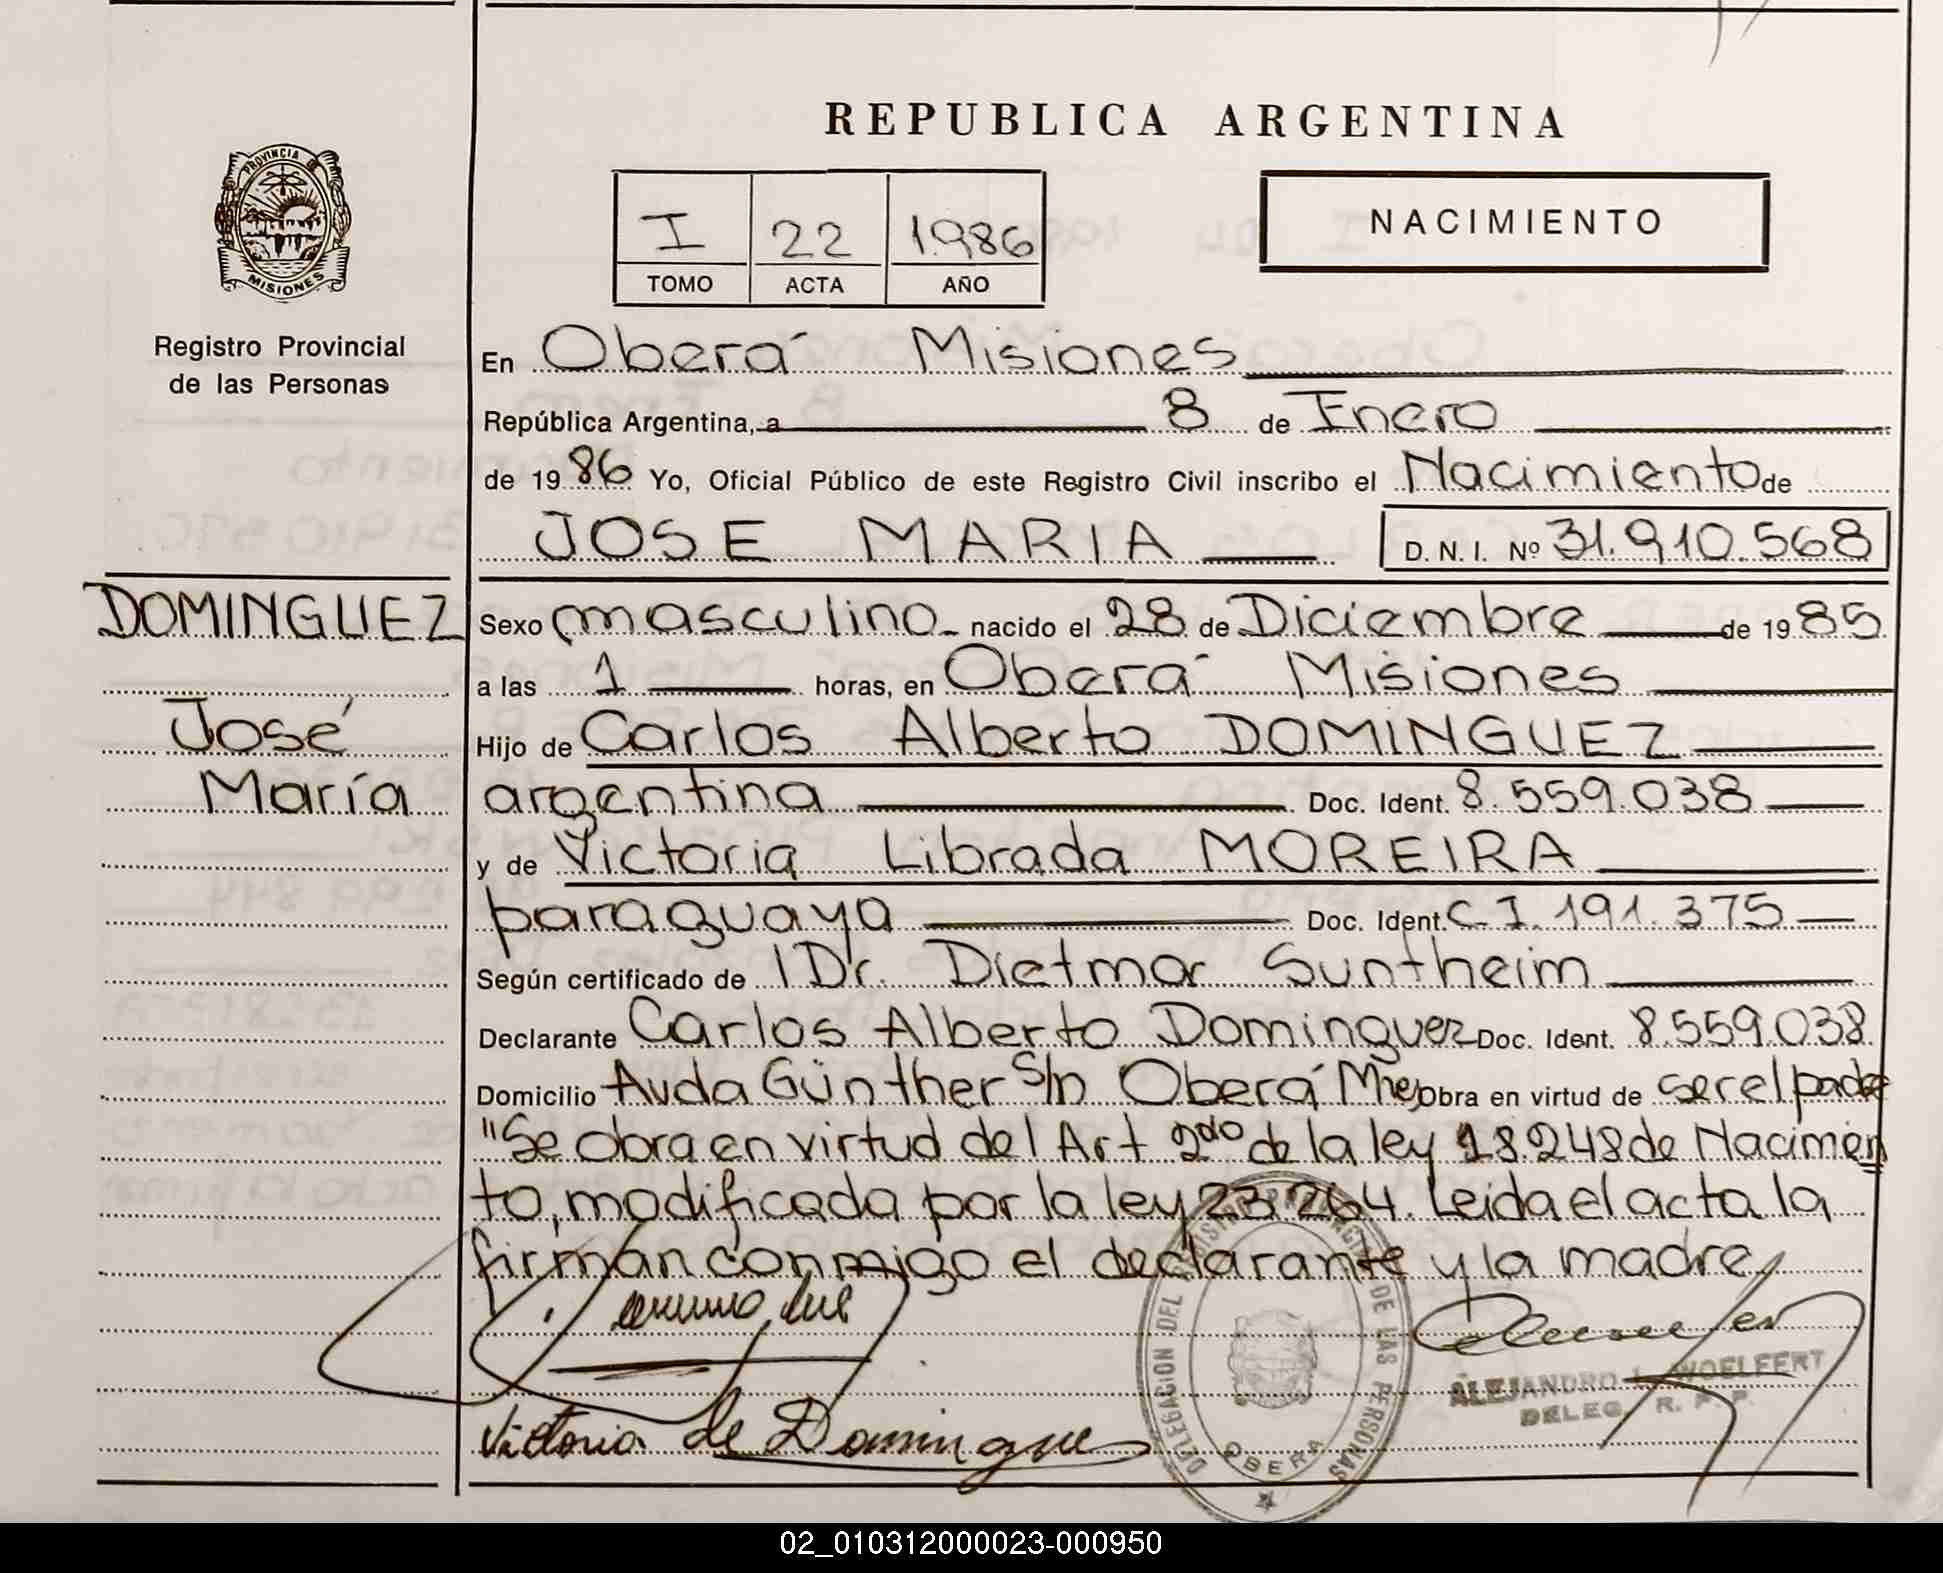 REPUBLICA ARGENTINA
PROVINCIA DE
MISIONES
Registro Provincial
de las Personas
I 22 1986
TOMO ACTA AÑO
NACIMIENTO
En Oberá Misiones
República Argentina, a 8 de Enero
de 1986 Yo, Oficial Público de este Registro Civil inscribo el Nacimiento de
JOSE MARIA D. N. I. Nº 31.910.568
DOMINGUEZ
José
María
Sexo masculino nacido el 28 de Diciembre de 1985
a las 1 horas, en Oberá Misiones
Hijo de Carlos Alberto DOMINGUEZ
argentina Doc. Ident. 8.559.038
y de Victoria Librada MOREIRA
paraguaya Doc. Ident. C.I. 191.375
Según certificado de Dr. Dietmar Suntheim
Declarante Carlos Alberto Dominguez Doc. Ident. 8.559.038
Domicilio Avda Günther S/n Oberá Mnes Obra en virtud de ser el padre
"Se obra en virtud del Art 2do de la ley 18248 de Nacimien
to, modificada por la ley 23.264. Leida el acta la
firman conmigo el declarante y la madre
Victoria de Dominguez
DELEGACION DEL REGISTRO PROVINCIAL DE LAS PERSONAS
OBERA
ALEJANDRO L. WOELFERT
DELEG. R. P. P.
02_010312000023-000950